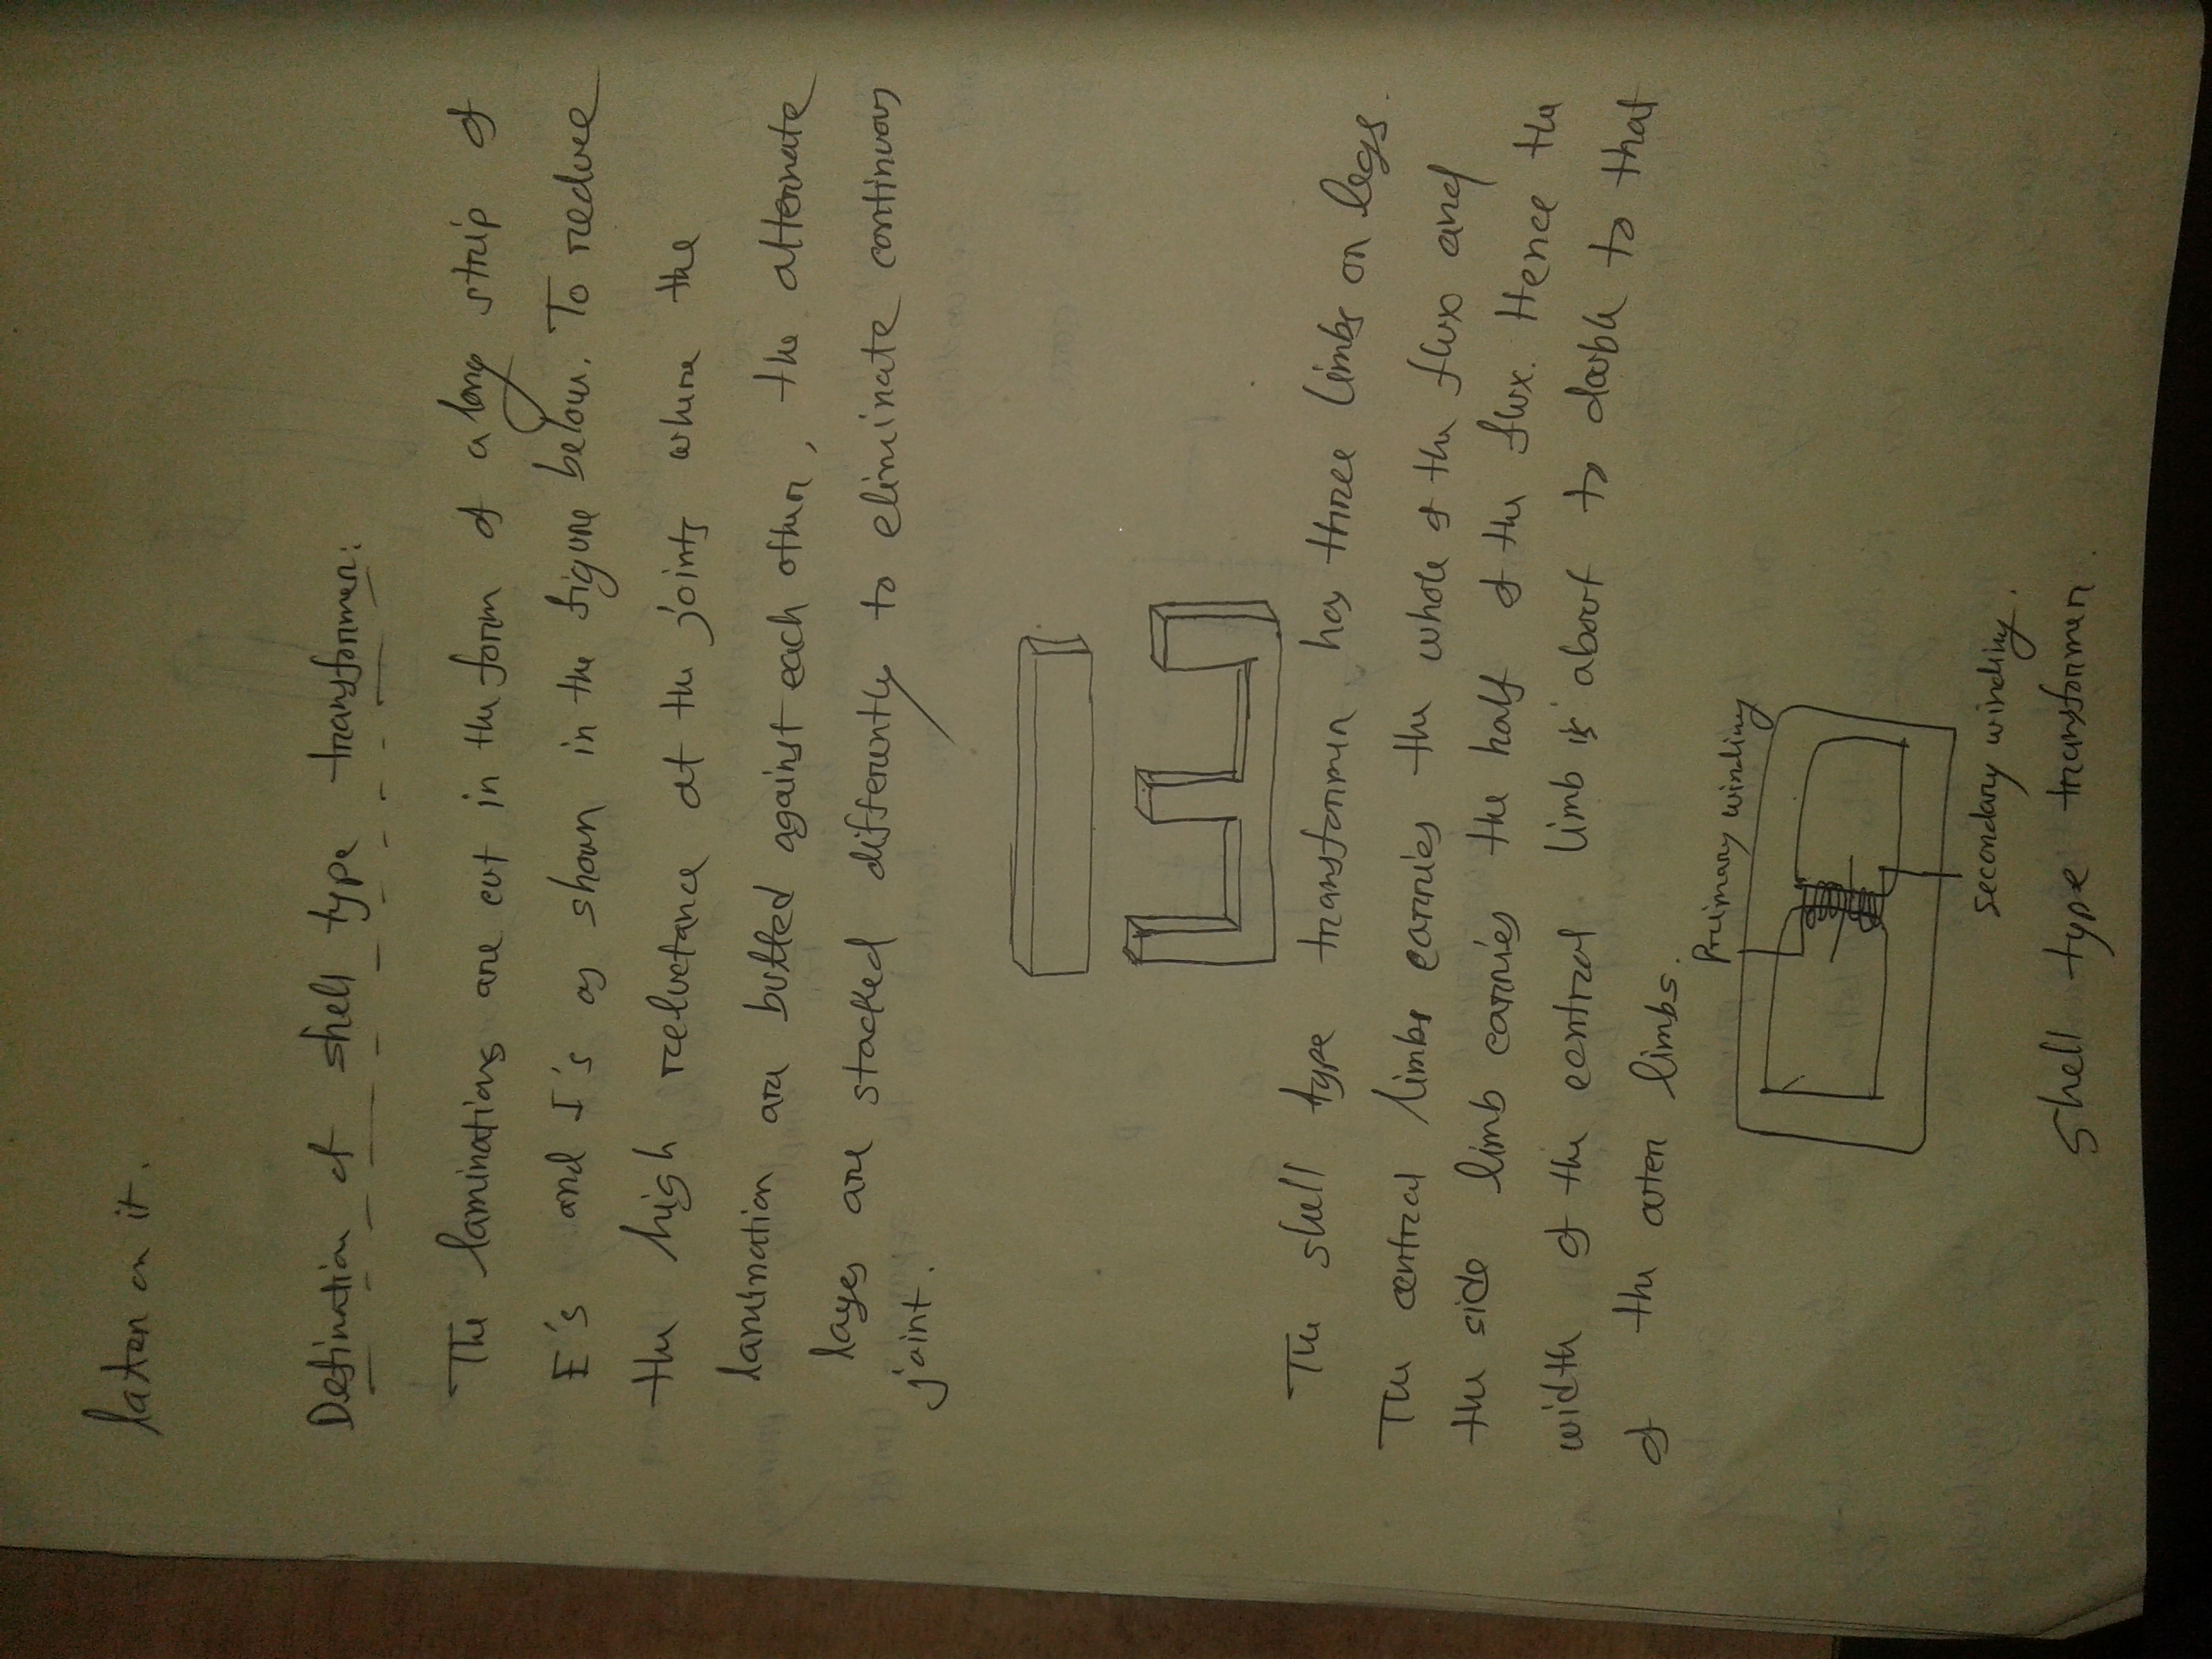 later on it.
Defination of shell type transformer:
The laminations are cut in the form of a long strip of
E's and I's as shown in the figure below. To reduce
the high reluctance at the joints where the
lamination are butted against each other, the alternate
layes are stacked differently to eliminate continuous
joint.
The shell type transformer has three limbs or legs.
The central limbs carries the whole of the flux and
the side limb carries the half of the flux. Hence the
width of the central limb is about to double to that
of the outer limbs.
Primary winding
Secondary winding.
Shell type transformer.